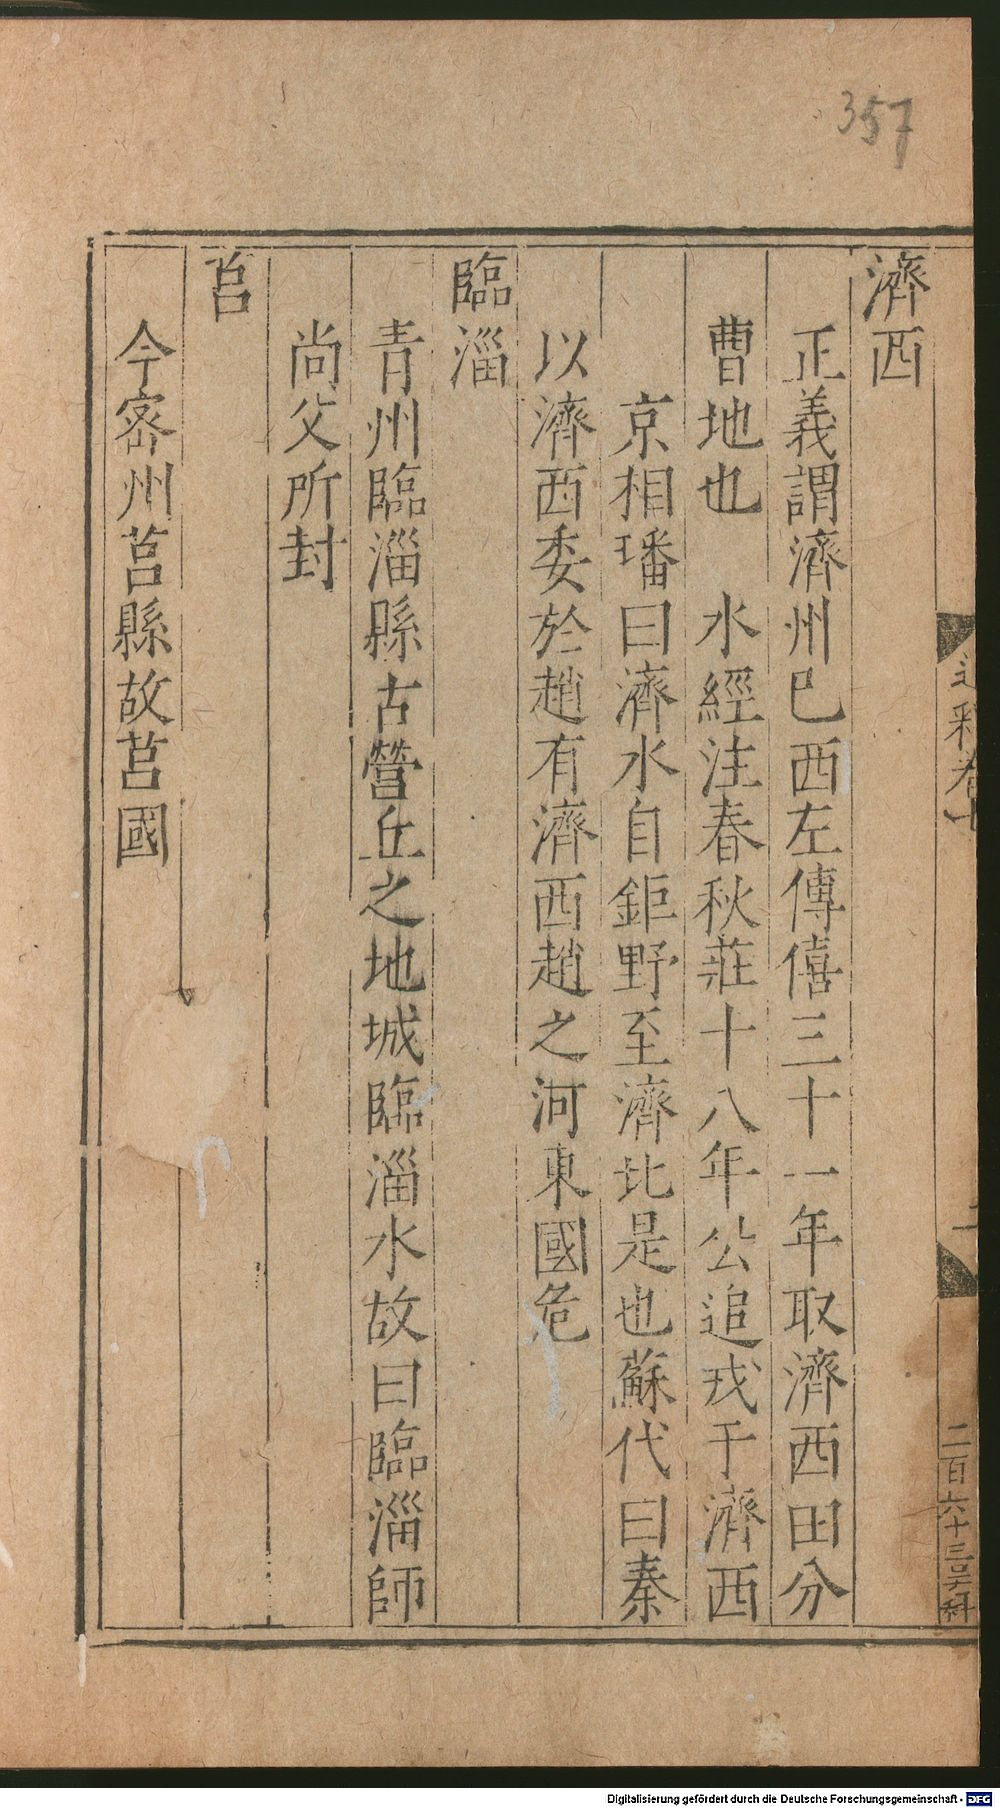 357
濟西
正義謂濟州巳西左傳僖三十一年取濟西田分
曹地也　水經注春秋莊十八年公追戎于濟西
京相璠曰濟水自鉅野至濟比是也蘇代曰秦
以濟西委於趙有濟西趙之河東國危
臨淄
青州臨淄縣古營丘之地城臨淄水故曰臨淄師
尚父所封
莒
今密州莒縣故莒國
通釋卷七
二百六十三
Digitalisierung gefördert durch die Deutsche Forschungsgemeinschaft - DFG